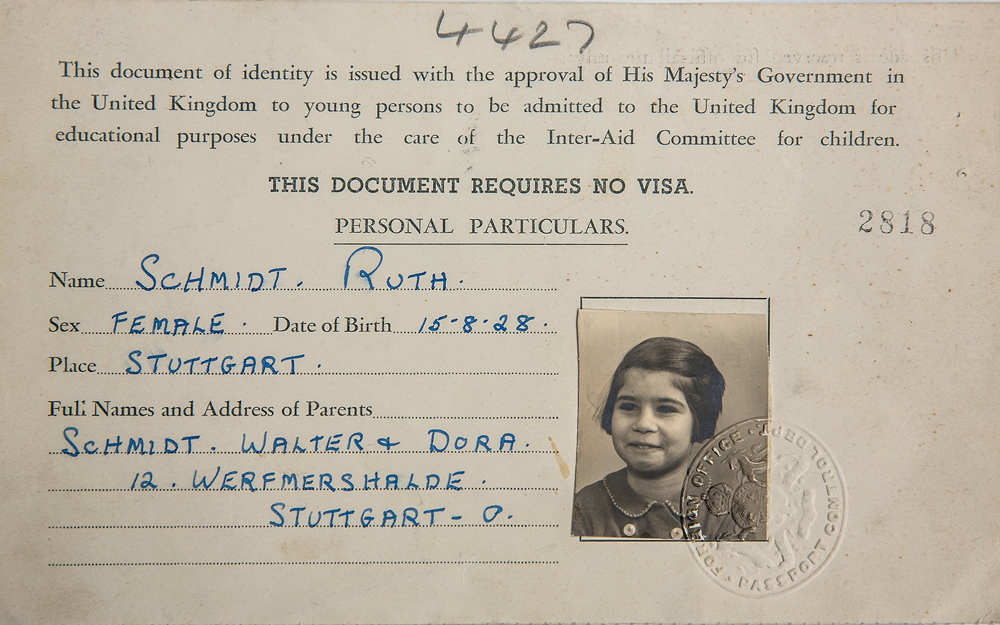 4427
This document of identity is issued with the approval of His Majesty's Government in
the United Kingdom to young persons to be admitted to the United Kingdom for
educational purposes under the care of the Inter-Aid Committee for children.
THIS DOCUMENT REQUIRES NO VISA.
PERSONAL PARTICULARS.
2818
Name SCHMIDT. RUTH.
Sex FEMALE. Date of Birth 15-8-28.
Place STUTTGART.
Full Names and Address of Parents
SCHMIDT. WALTER & DORA.
12. WERFMERSHALDE.
STUTTGART - O.
FOREIGN OFFICE
PASSPORT CONTROL DEPT.